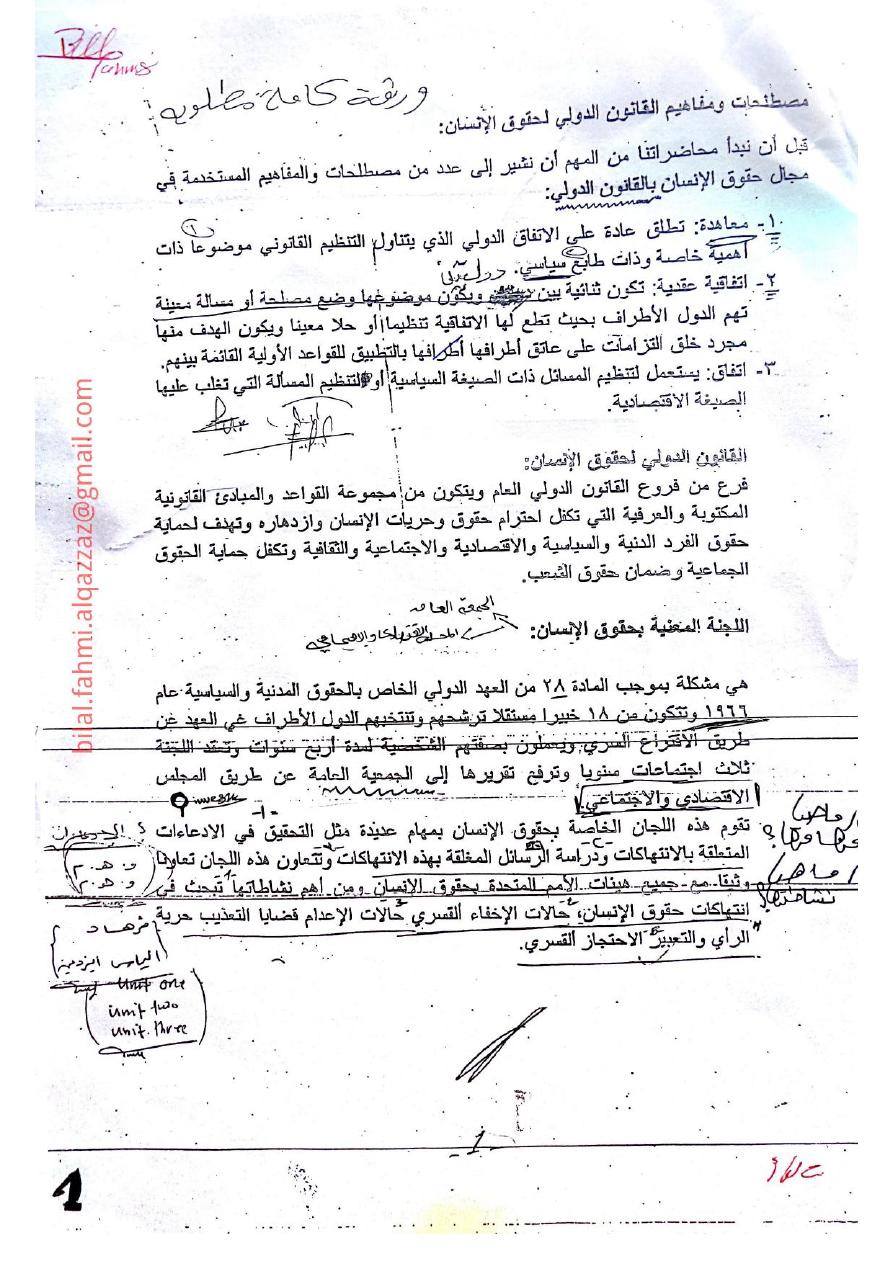 ورقة كاملة مطلوبه
مصطلحات ومفاهيم القانون الدولي لحقوق الإنسان:
قبل أن نبدأ محاضراتنا من المهم أن نشير إلى عدد من مصطلحات والمفاهيم المستخدمة في
مجال حقوق الإنسان بالقانون الدولي:
١- معاهدة: تطلق عادة على الاتفاق الدولي الذي يتناول التنظيم القانوني موضوعا ذات
أهمية خاصة وذات طابع سياسي.
٢- اتفاقية عقدية: تكون ثنائية بين ويكون موضوعها وضع مصلحة أو مسالة معينة
تهم الدول الأطراف بحيث تطع لها الاتفاقية تنظيما أو حلا معينا ويكون الهدف منها
مجرد خلق التزامات على عاتق أطرافها أطرافها بالتطبيق للقواعد الأولية القائمة بينهم.
٣- اتفاق: يستعمل لتنظيم المسائل ذات الصيغة السياسية أو لتنظيم المسألة التي تغلب عليها
الصيغة الاقتصادية.
bilal.fahmi.alqazzaz@gmail.com
القانون الدولي لحقوق الإنسان:
فرع من فروع القانون الدولي العام ويتكون من مجموعة القواعد والمبادئ القانونية
المكتوبة والعرفية التي تكفل احترام حقوق وحريات الإنسان وازدهاره وتهدف لحماية
حقوق الفرد الدنية والسياسية والاقتصادية والاجتماعية والثقافية وتكفل حماية الحقوق
الجماعية وضمان حقوق الشعب.
الجمعية العامه
اللجنة المعنية بحقوق الإنسان:
المجلس الاقتصادي والاجتماعي
هي مشكلة بموجب المادة ٢٨ من العهد الدولي الخاص بالحقوق المدنية والسياسية عام
١٩٦٦ وتتكون من ١٨ خبيرا مستقلا ترشحهم وتنتخبهم الدول الأطراف غي العهد عن
طريق الاقتراع السري ويعملون بصفتهم الشخصية لمدة أربع سنوات وتعقد اللجنة
ثلاث اجتماعات سنويا وترفع تقريرها إلى الجمعية العامة عن طريق المجلس
الاقتصادي والاجتماعي.
تقوم هذه اللجان الخاصة بحقوق الإنسان بمهام عديدة مثل التحقيق في الادعاءات
المتعلقة بالانتهاكات ودراسة الرسائل المغلقة بهذه الانتهاكات وتتعاون هذه اللجان تعاونا
وثيقا مع جميع هيئات الأمم المتحدة بحقوق الإنسان ومن أهم نشاطاتها تبحث في
انتهاكات حقوق الإنسان، حالات الإخفاء القسري حالات الإعدام قضايا التعذيب حرية
الرأي والتعبير الاحتجاز القسري.
نشاطتها؟
فرهاد
الياس ايزدين
unit one
unit two
unit three
- 1
1